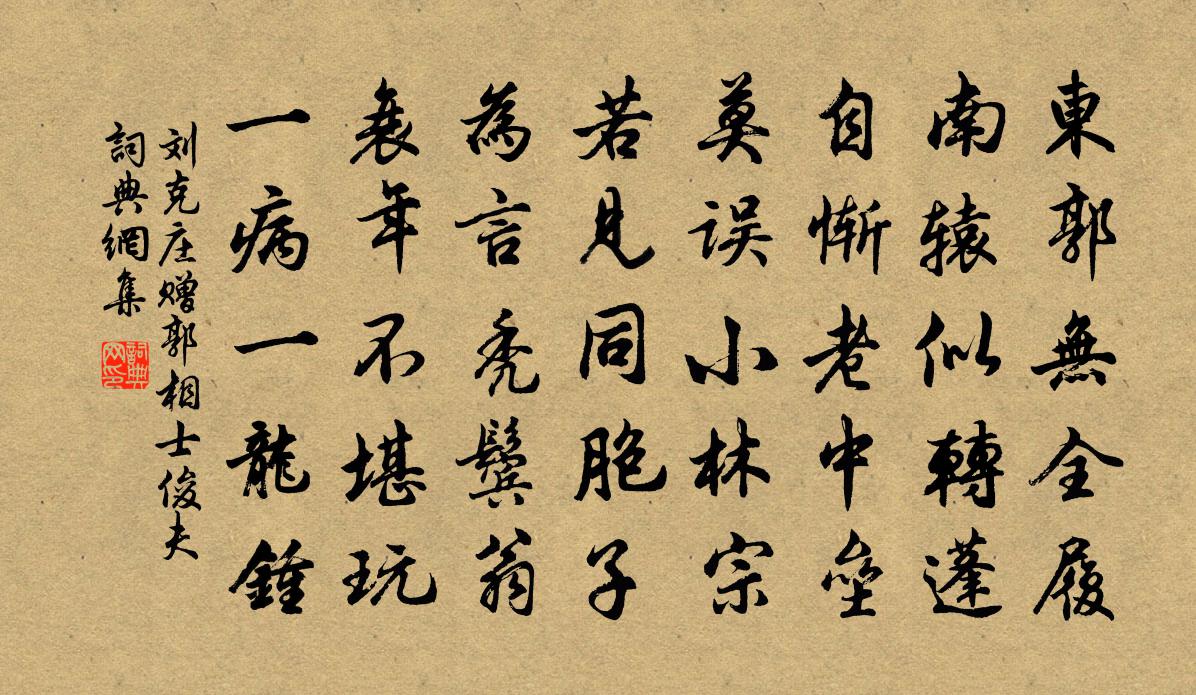 東郭無全履
南辕似轉蓬
自慚老中壘
莫误小林宗
若見同胞子
為言禿鬓翁
衰年不堪玩
一病一龍鍾
刘克庄赠郭相士俊夫
詞典網集
詞典
网印